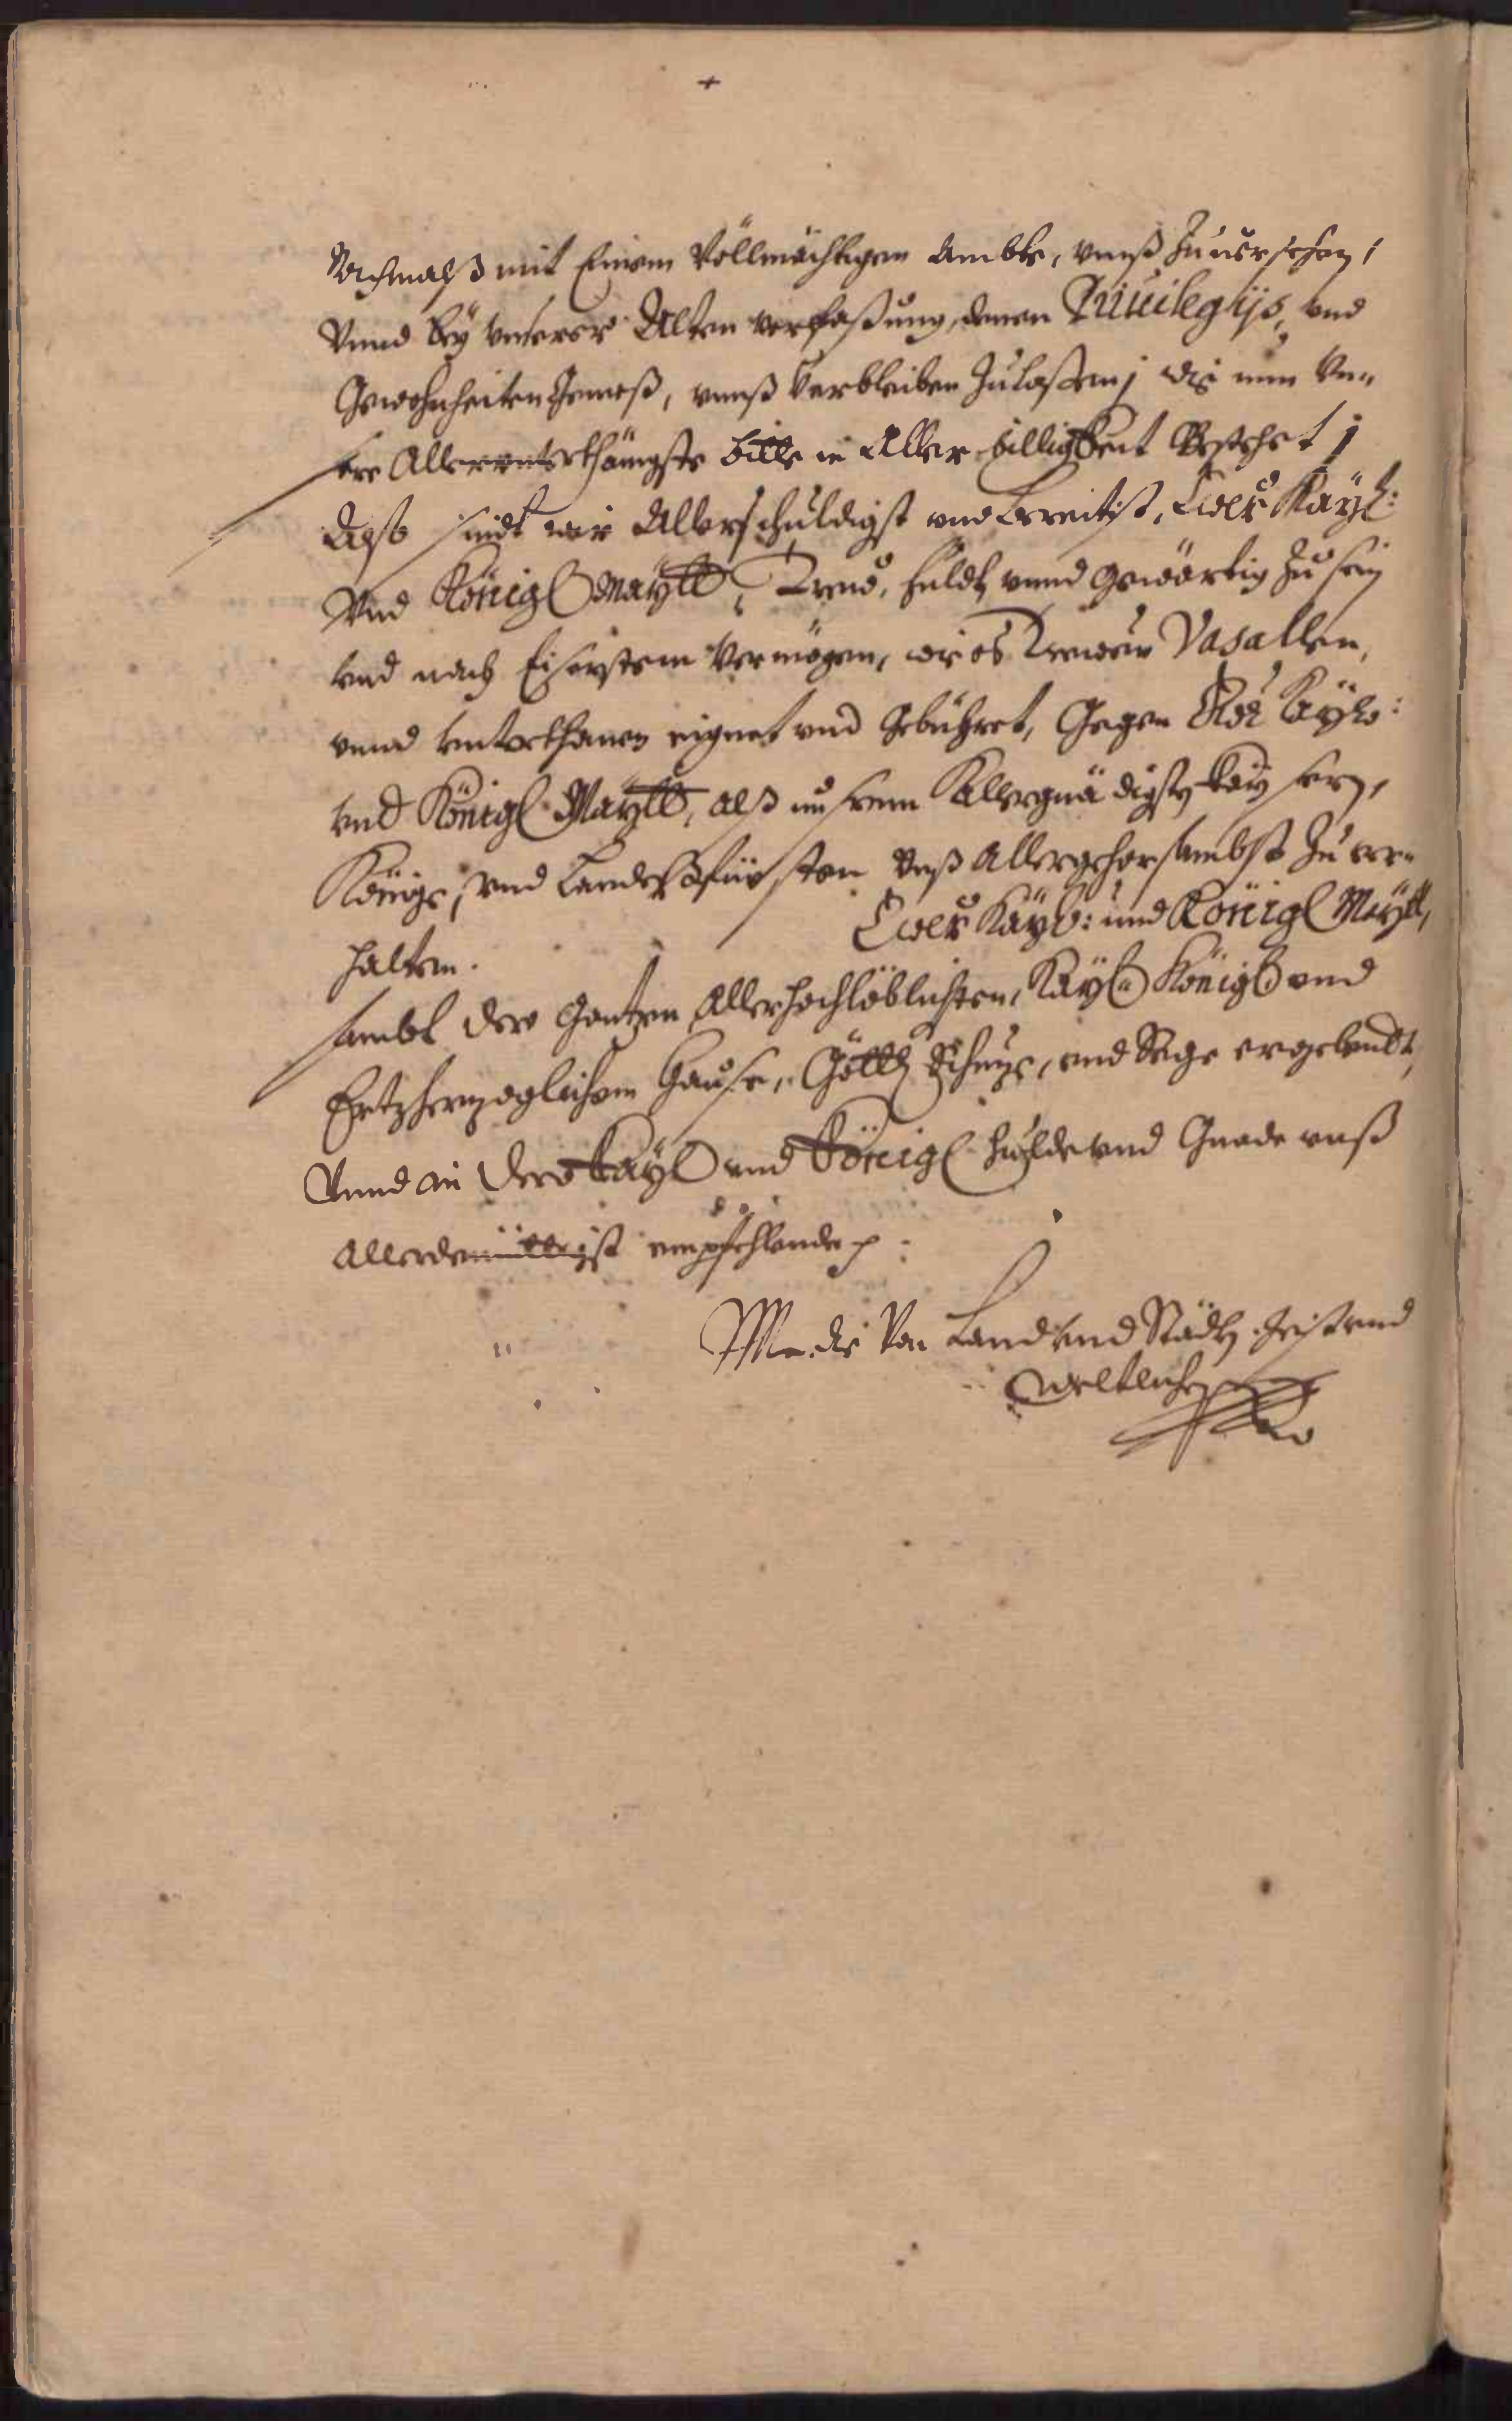 Nachmalß mit Einem Vollmächtigen Ambte, vnnß Zuuersehen,
Vnnd bey vnserer Alten verfaßung, denen Priuilegijs, vnd
Gewohnheiten Gemeß, vnnß Verbleiben Zulaßen; Wie nun Vn-
sere Allerunterthänigste bitte in Aller billigkeit Bestehet;
Also sindt wir Allerschuldigst vnd bereitist, Ewer Kayl:
Vnd Königl Maytt, Treu, huldt vnnd Gewärtig Zu sein
vnd nach Eiserstem Vermögen, wie es Trewen Vasallen,
vnnd vnterthanen eignet vnd Gebühret, Gegen Ewer Kayl:
vnd Königl Maytt, alß unserem Allergnädigsten Kayser,
Könige, vnd Landeßfürsten Vnß Allergehorsambst Zu ver-
halten. Ewer Kayl: und Königl Maytt,
sambt dero Gantzen Allerhochlöblichsten, Kayl: Königl vnd
Ertzherzoglichem Hause, Göttl Schuze, vnd Pflege ergebendt,
Vnnd in dero Kayl vnd Königl hulde vnd Gnade vnß
Allerdemüttigst empfehlende p.
N. N. die Von Land vnd Städten Geist vnd
Weltliche